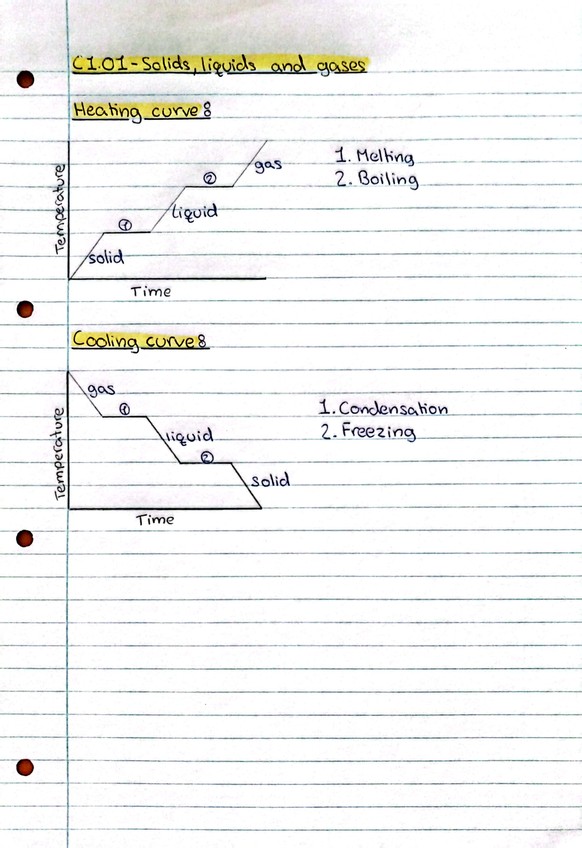 C1.01-Solids, liquids and gases
Heating curve:
Temperature
solid
①
liquid
②
gas
Time
1. Melting
2. Boiling
Cooling curve:
Temperature
gas
①
liquid
②
solid
Time
1. Condensation
2. Freezing